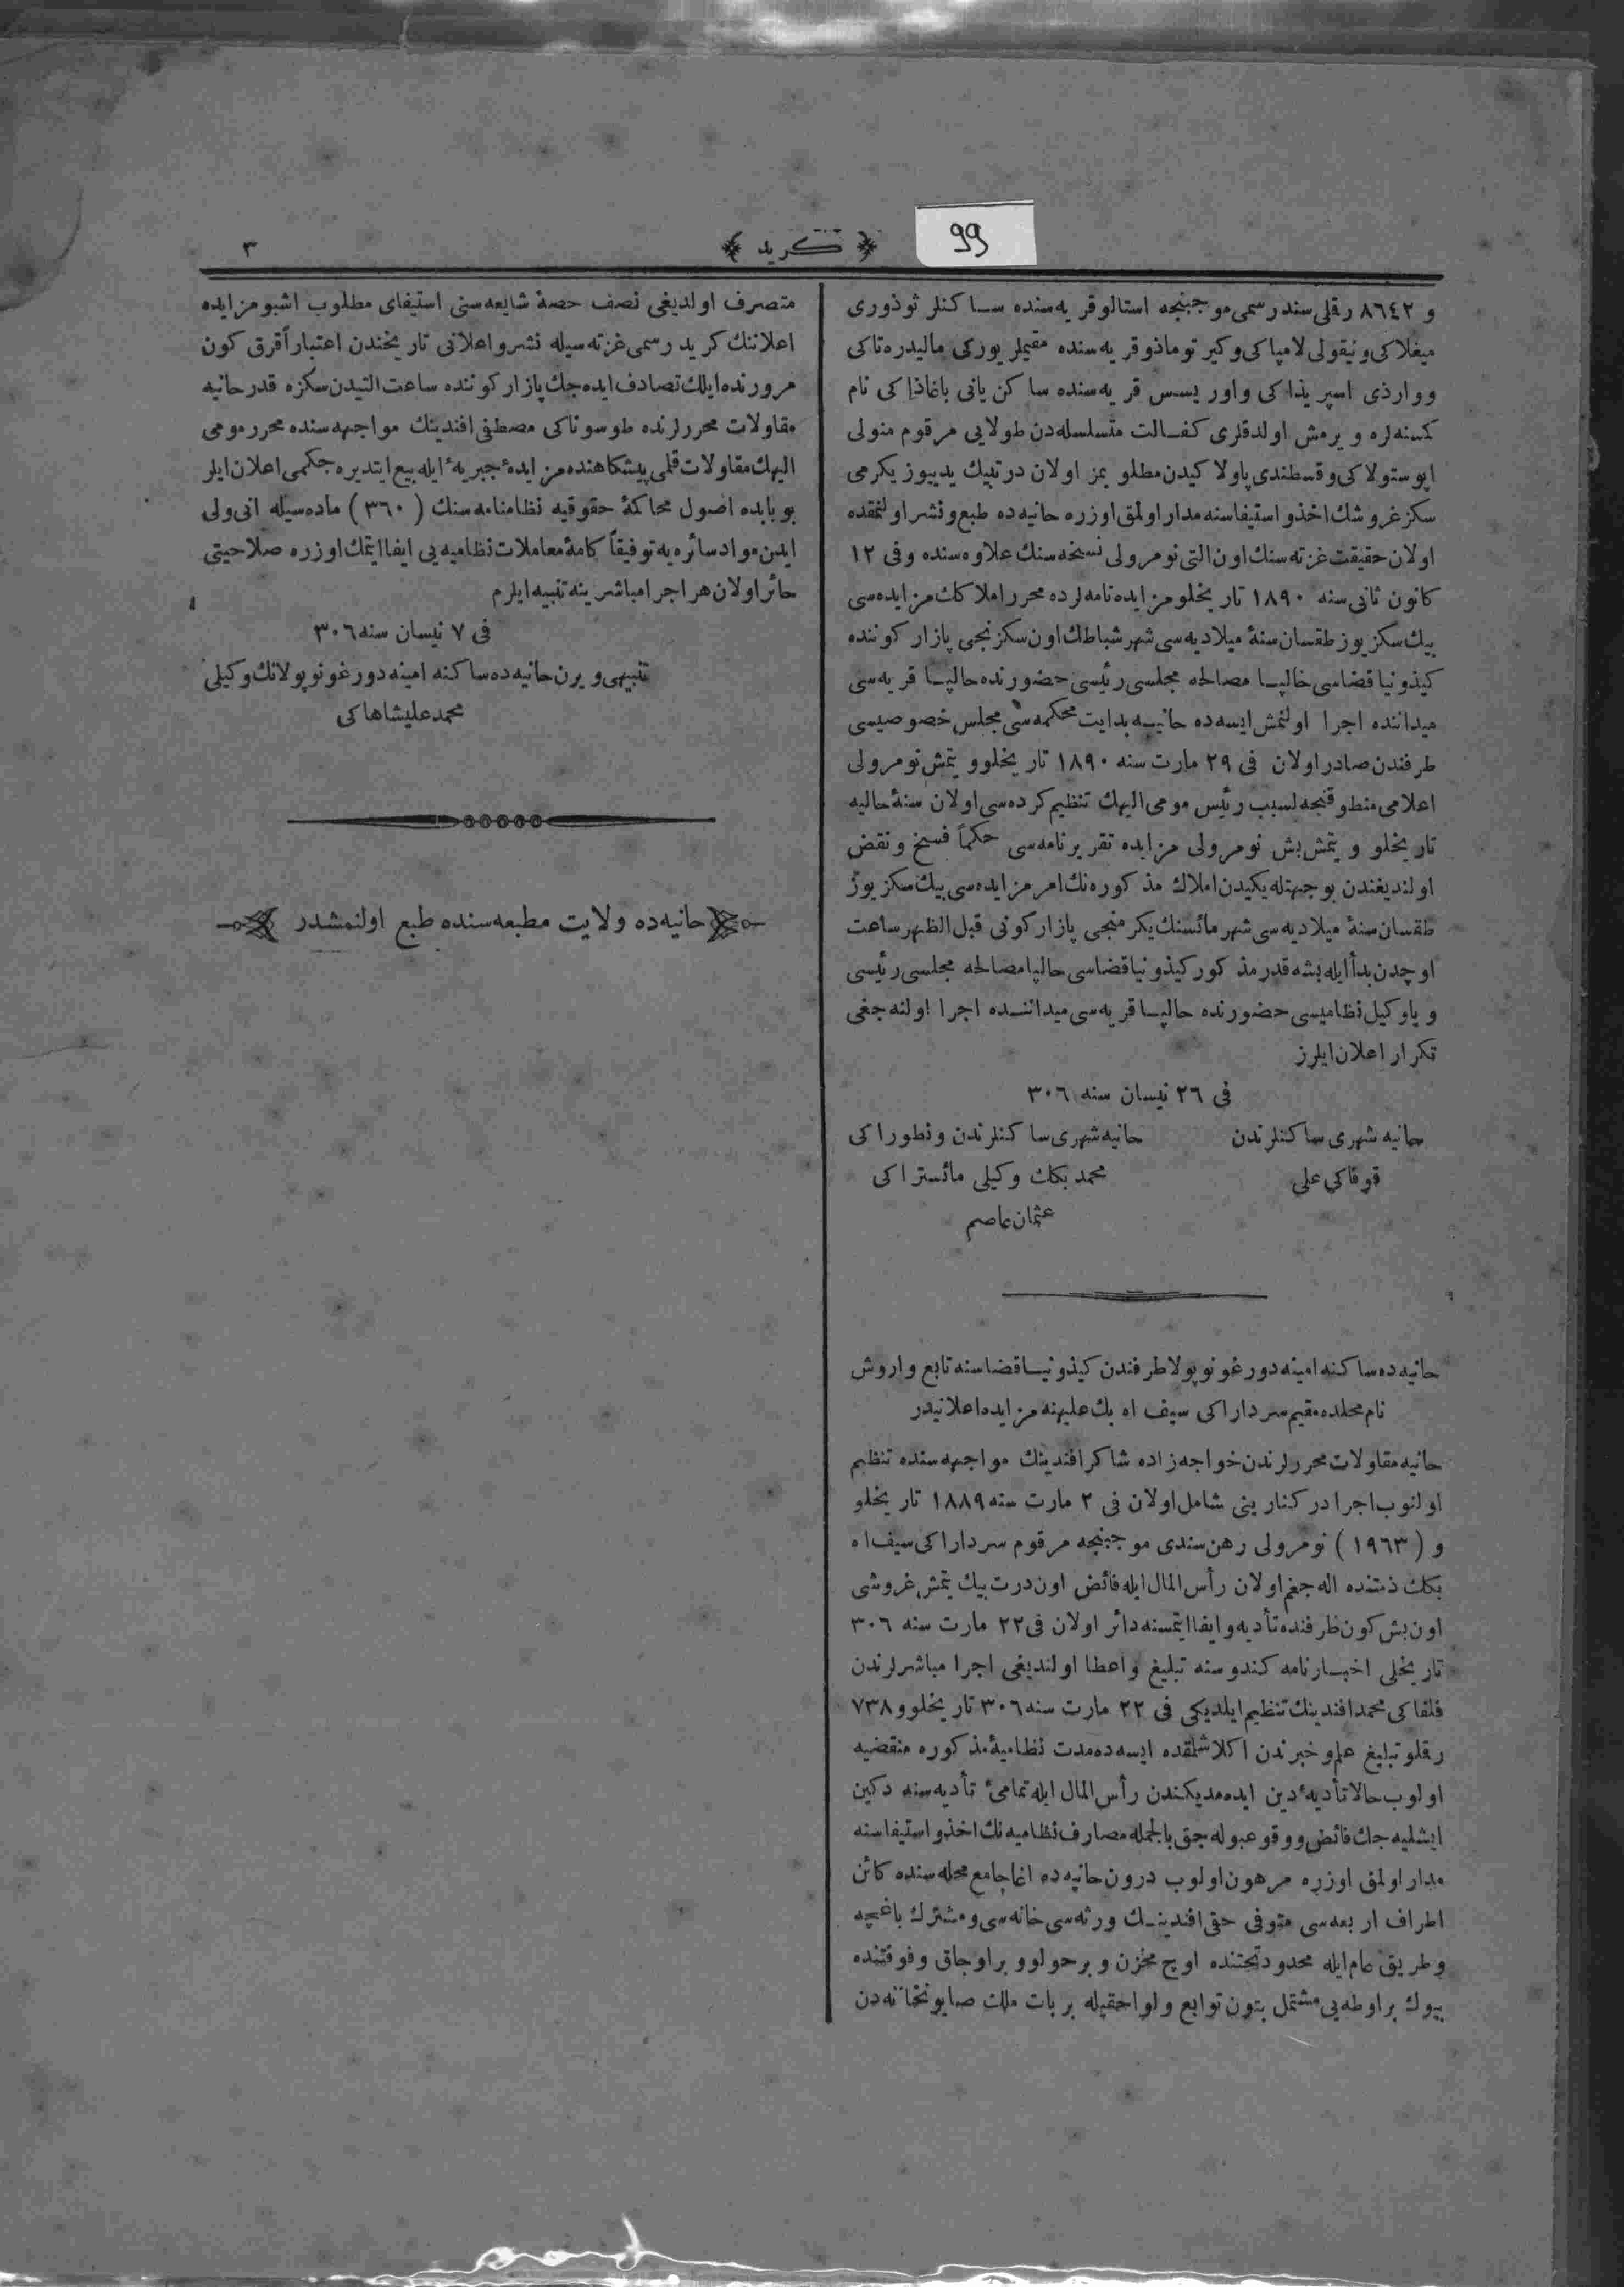 99
﴿ كريد ﴾
٣
و ٨٦٤٢ رقملى سند رسمى موجبنجه استالو قريه‌سنده ساكنلر ثوذورى
ميغلاكى و نيقولى لامپاكى و كيرتوماذو قريه‌سنده مقيملر يوركى ماليدره‌تاكى
و واردى اسپريذاكى و اوريسس قريه‌سنده ساكن يانى باغاذاكى نام
كمسنه‌لره ويرمش اولدقلرى كفالت متسلسله‌دن طولايى مرقوم منولى
اپوستولاكى و قسطندى پاولاكيدن مطلوبمز اولان درت بيك يديوز يكرمى
سكز غروشك اخذ و استيفاسنه مدار اولمق اوزره حانيه‌ده طبع و نشر اولنمقده
اولان حقيقت غزته‌سنك اون التى نومرولى نسخه‌سنك علاوه‌سنده و فى ١٢
كانون ثانى سنه ١٨٩٠ تاريخلو مزايده‌نامه‌لرده محرر املاكك مزايده‌سى
بيك سكز يوز طقسان سنۀ ميلاديه‌سى شهر شباطك اون سكزنجى پازار كوننده
كيذونيا قضاسى حاليپا مصالحه مجلسى رئيسى حضورنده حاليپا قريه‌سى
ميداننده اجرا اولنمش ايسه‌ده حانيه بدايت محكمه‌سى مجلس خصوصيسى
طرفندن صادر اولان فى ٢٩ مارت سنه ١٨٩٠ تاريخلو و يتمش نومرولى
اعلامى منطوقنجه لسبب رئيس مومى اليهك تنظيم كرده‌سى اولان سنۀ حاليه
تاريخلو و يتمش بش نومرولى مزايده تقريرنامه‌سى حكماً فسخ و نقض
اولنديغندن بو جهتله يكيدن املاك مذكوره‌نك امر مزايده‌سى بيك سكز يوز
طقسان سنۀ ميلاديه‌سى شهر مائسنك يكرمنجى پازار كونى قبل الظهر ساعت
اوچدن بدأ ايله بشه قدر مذكور كيذونيا قضاسى حاليپا مصالحه مجلسى رئيسى
و ياوكيل نظاميسى حضورنده حاليپا قريه‌سى ميداننده اجرا اولنه‌جغى
تكرار اعلان ايلرز
فى ٢٦ نيسان سنه ٣٠٦
حانيه شهرى ساكنلرندن
قوقاكى على
حانيه شهرى ساكنلرندن ونطوراكى
محمد بكك وكيلى مائستراكى
عثمان عاصم
حانيه‌ده ساكنه امينه دورغونوپولا طرفندن كيذونيا قضاسنه تابع واروش
نام محلده مقيم سرداراكى سيف اه بك عليهنه مزايده اعلانيدر
حانيه مقاولات محررلرندن خواجه‌زاده شاكر افندينك مواجهه‌سنده تنظيم
اولنوب اجرا دركنارينى شامل اولان فى ٢ مارت سنه ١٨٨٩ تاريخلو
و ( ١٩٦٣ ) نومرولى رهن سندى موجبنجه مرقوم سرداراكى سيف اه
بكك ذمتنده اله‌جغم اولان رأس المال ايله فائض اون درت بيك يتمش غروشى
اون بش كون ظرفنده تأديه و ايفا ايتمسنه دائر اولان فى ٢٢ مارت سنه ٣٠٦
تاريخلى اخبارنامه كندوسنه تبليغ و اعطا اولنديغى اجرا مباشرلرندن
فلفاكى محمد افندينك تنظيم ايلديكى فى ٢٢ مارت سنه ٣٠٦ تاريخلو و ٧٣٨
رقملو تبليغ علم و خبرندن اكلاشلمقده ايسه‌ده مدت نظاميۀ مذكوره منقضيه
اولوب حالا تأديۀ دين ايده‌مديكندن رأس المال ايله تمامئ تأديه‌سنه دكين
ايشليه‌جك فائض و وقوعبوله‌جق بالجمله مصارف نظاميه‌نك اخذ و استيفاسنه
مدار اولمق اوزره مرهون اولوب درون حانيه‌ده اغا جامع محله‌سنده كائن
اطراف اربعه‌سى متوفى حقى افندينك ورثه‌سى خانه‌سى و مشترك باغچه
و طريق عام ايله محدود تحتنده اوچ مخزن و بر حولو و براوجاق و فوقنده
بيوك براوطه‌يى مشتمل بتون توابع و لواحقيله بر باب ملك صابونخانه‌دن
متصرف اولديغى نصف حصۀ شايعه‌سنى استيفاى مطلوب اشبو مزايده
اعلاننك كريد رسمى غزته‌سيله نشر و اعلانى تاريخندن اعتباراً قرق كون
مرورنده ايلك تصادف ايده‌جك پازار كوننده ساعت التيدن سكزه قدر حانيه
مقاولات محررلرنده طوسوناكى مصطفى افندينك مواجهه‌سنده محرر مومى
اليهك مقاولات قلمى پيشكاهنده مزايدۀ جبريه ايله بيع ايتديره‌جكمى اعلان ايلر
بو بابده اصول محاكمۀ حقوقيه نظامنامه‌سنك ( ٣٦٠ ) ماده‌سيله انى ولى
ايدن مواد سائره‌يه توفيقاً كامۀ معاملات نظاميه‌يى ايفا ايتمك اوزره صلاحيتى
حائز اولان هر اجرا مباشرينه تنبيه ايلرم
فى ٧ نيسان سنه ٣٠٦
تنبيهى ويرن حانيه‌ده ساكنه امينه دورغونوپولانك وكيلى
محمد عليشاهاكى
حانيه‌ده ولايت مطبعه‌سنده طبع اولنمشدر